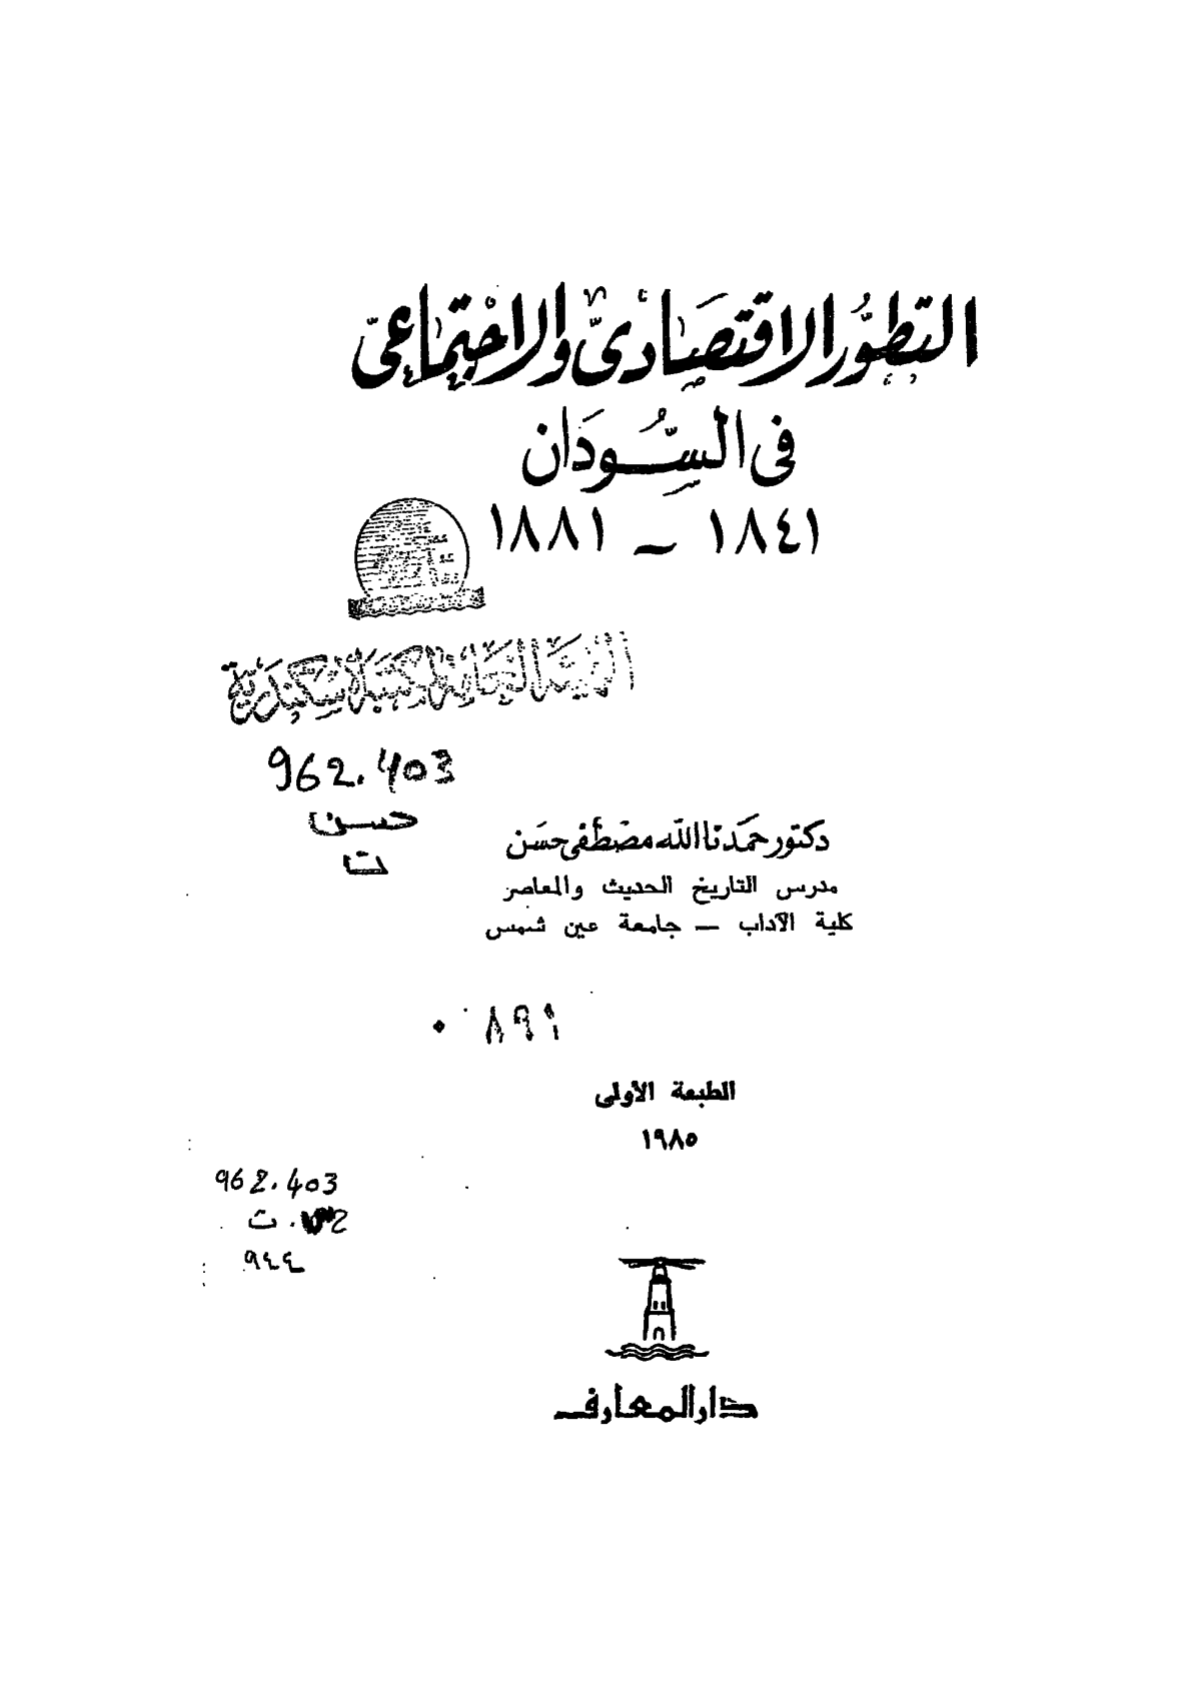 التطوُّر الاقتصادىّ والاجتماعىّ
فى السُّودَان
١٨٤١ – ١٨٨١
962.403
حسن
ت
دكتور حمَدنا الله مصْطَفى حسَن
مدرس التاريخ الحديث والمعاصر
كلية الآداب — جامعة عين شمس
الطبعة الأولى
١٩٨٥
962.403
ت
٩٤٤
دار المعارف